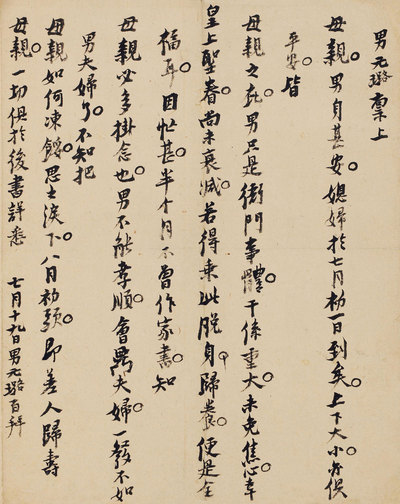 男元璐稟上
母親。男自甚安。媳婦於七月初一日到矣。上下大小亦俱
平安。皆
母親之庇。男只是衙門事體。干係重大。未免焦心。幸
皇上聖眷。尚未衰減。若得乘此脫身歸養。便是全
福耳。因忙甚。半个月不曾作家書。知
母親必多掛念也。男不能孝順。會禺夫婦一發不如
男夫婦了。不知把
母親如何凍餒。思之淚下。八月初頭。即差人歸壽
母親。一切俱於後書詳悉 七月十九日男元璐百拜